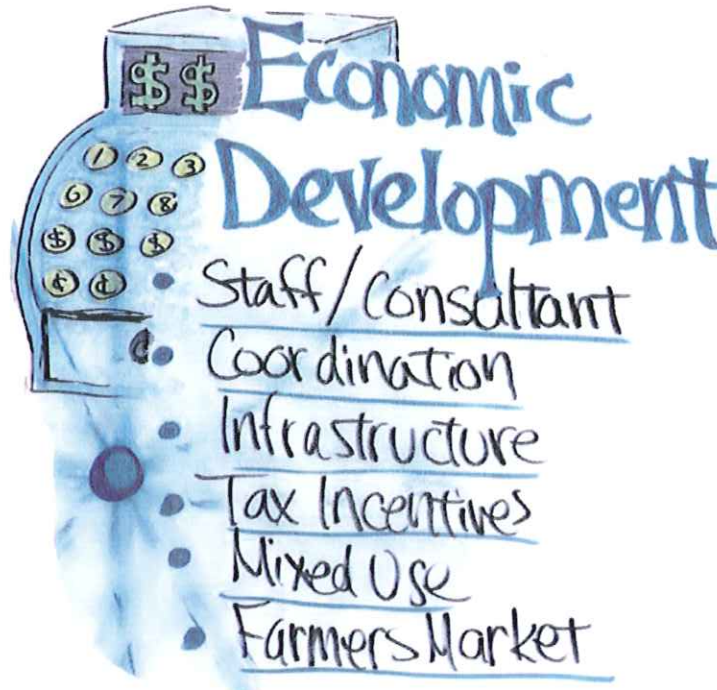 $ $
Economic
Development
1 2 3
6 7 8
$ $ $
¢ ¢
• Staff/Consultant
• Coordination
• Infrastructure
• Tax Incentives
• Mixed Use
• Farmers Market